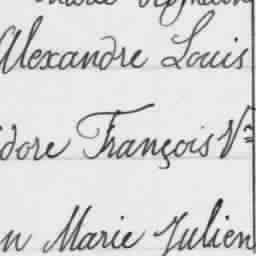 Alexandre Louis
dore François V^e
n Marie Julien